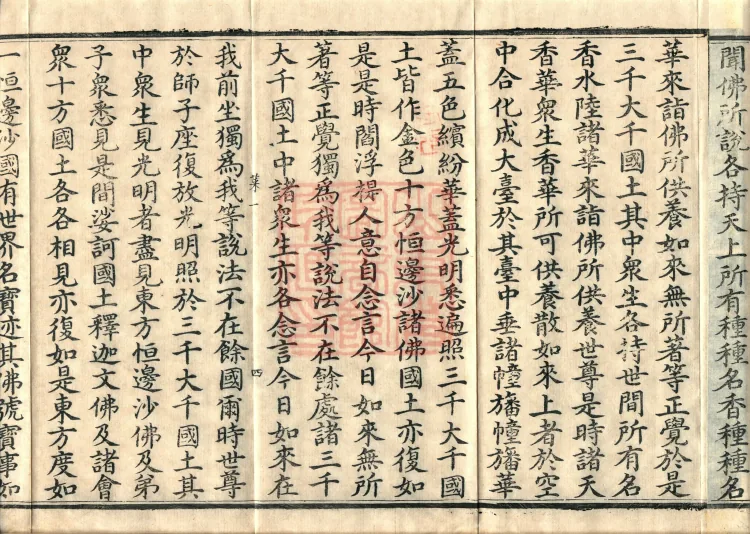 聞佛所說各持天上所有種種名香種種名
華來詣佛所供養如來無所著等正覺於是
三千大千國土其中衆生各持世間所有名
香水陸諸華來詣佛所供養世尊是時諸天
香華衆生香華所可供養散如來上者於空
中合化成大臺於其臺中垂諸幢旛幢旛華
蓋五色繽紛華蓋光明悉遍照三千大千國
土皆作金色十方恒邊沙諸佛國土亦復如
是是時閻浮提人意自念言今日如來無所
著等正覺獨為我等說法不在餘處諸三千
大千國土中諸衆生亦各念言今日如來在
菜一 四
我前坐獨為我等說法不在餘國爾時世尊
於師子座復放光明照於三千大千國土其
中衆生見光明者盡見東方恒邊沙佛及弟
子衆悉見是間娑訶國土釋迦文佛及諸會
衆十方國土各各相見亦復如是東方度如
一恒邊沙國有世界名寶迹其佛號寶事如